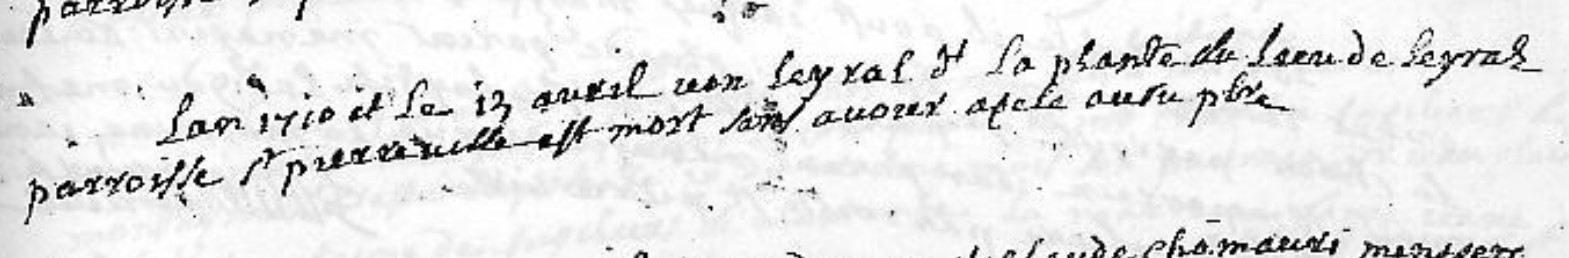 parroisse
Lan 1710 et le 13 auril uen leyral dt la plante du lieu de leyral
parroisse st pierreuille est mort sans auoir apele aucu pbre
claude chamauri